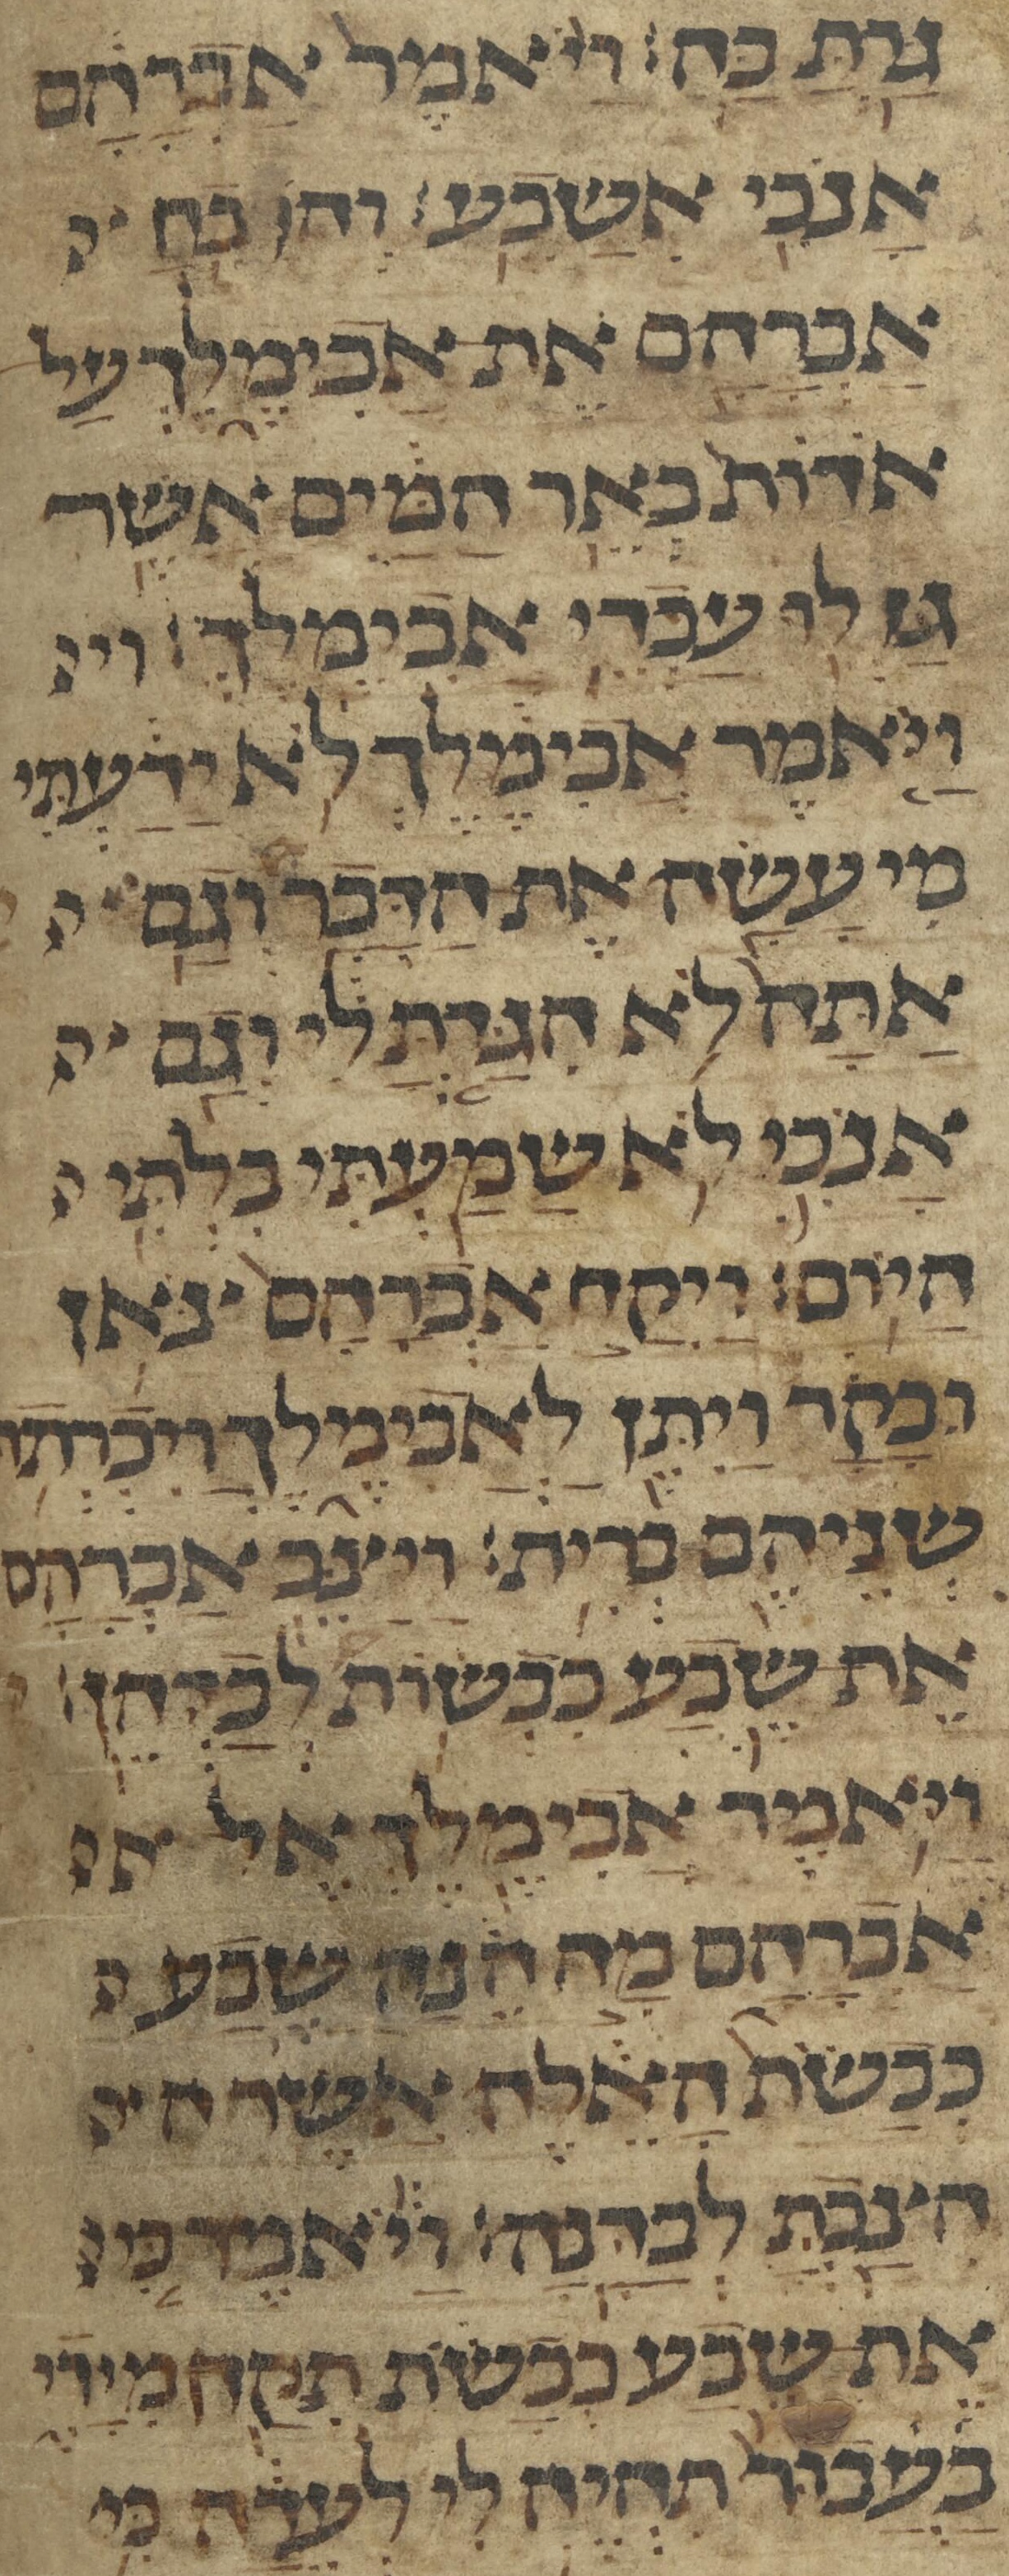 גרתה בה׃ ויאמר אברהם
אנכי אשבע׃ והוכח
אברהם את אבימלך על
אדות באר המים אשר
גזלו עבדי אבימלך׃
ויאמר אבימלך לא ידעתי
מי עשה את הדבר הזה וגם
אתה לא הגדת לי וגם
אנכי לא שמעתי בלתי
היום׃ ויקח אברהם צאן
ובקר ויתן לאבימלך ויכרתו
שניהם ברית׃ ויצב אברהם
את שבע כבשות לבדהן׃
ויאמר אבימלך אל
אברהם מה הנה שבע
כבשת האלה אשר
הצבת לבדנה׃ ויאמר כי
את שבע כבשת תקח מידי
בעבור תהיה לי לעדה כי